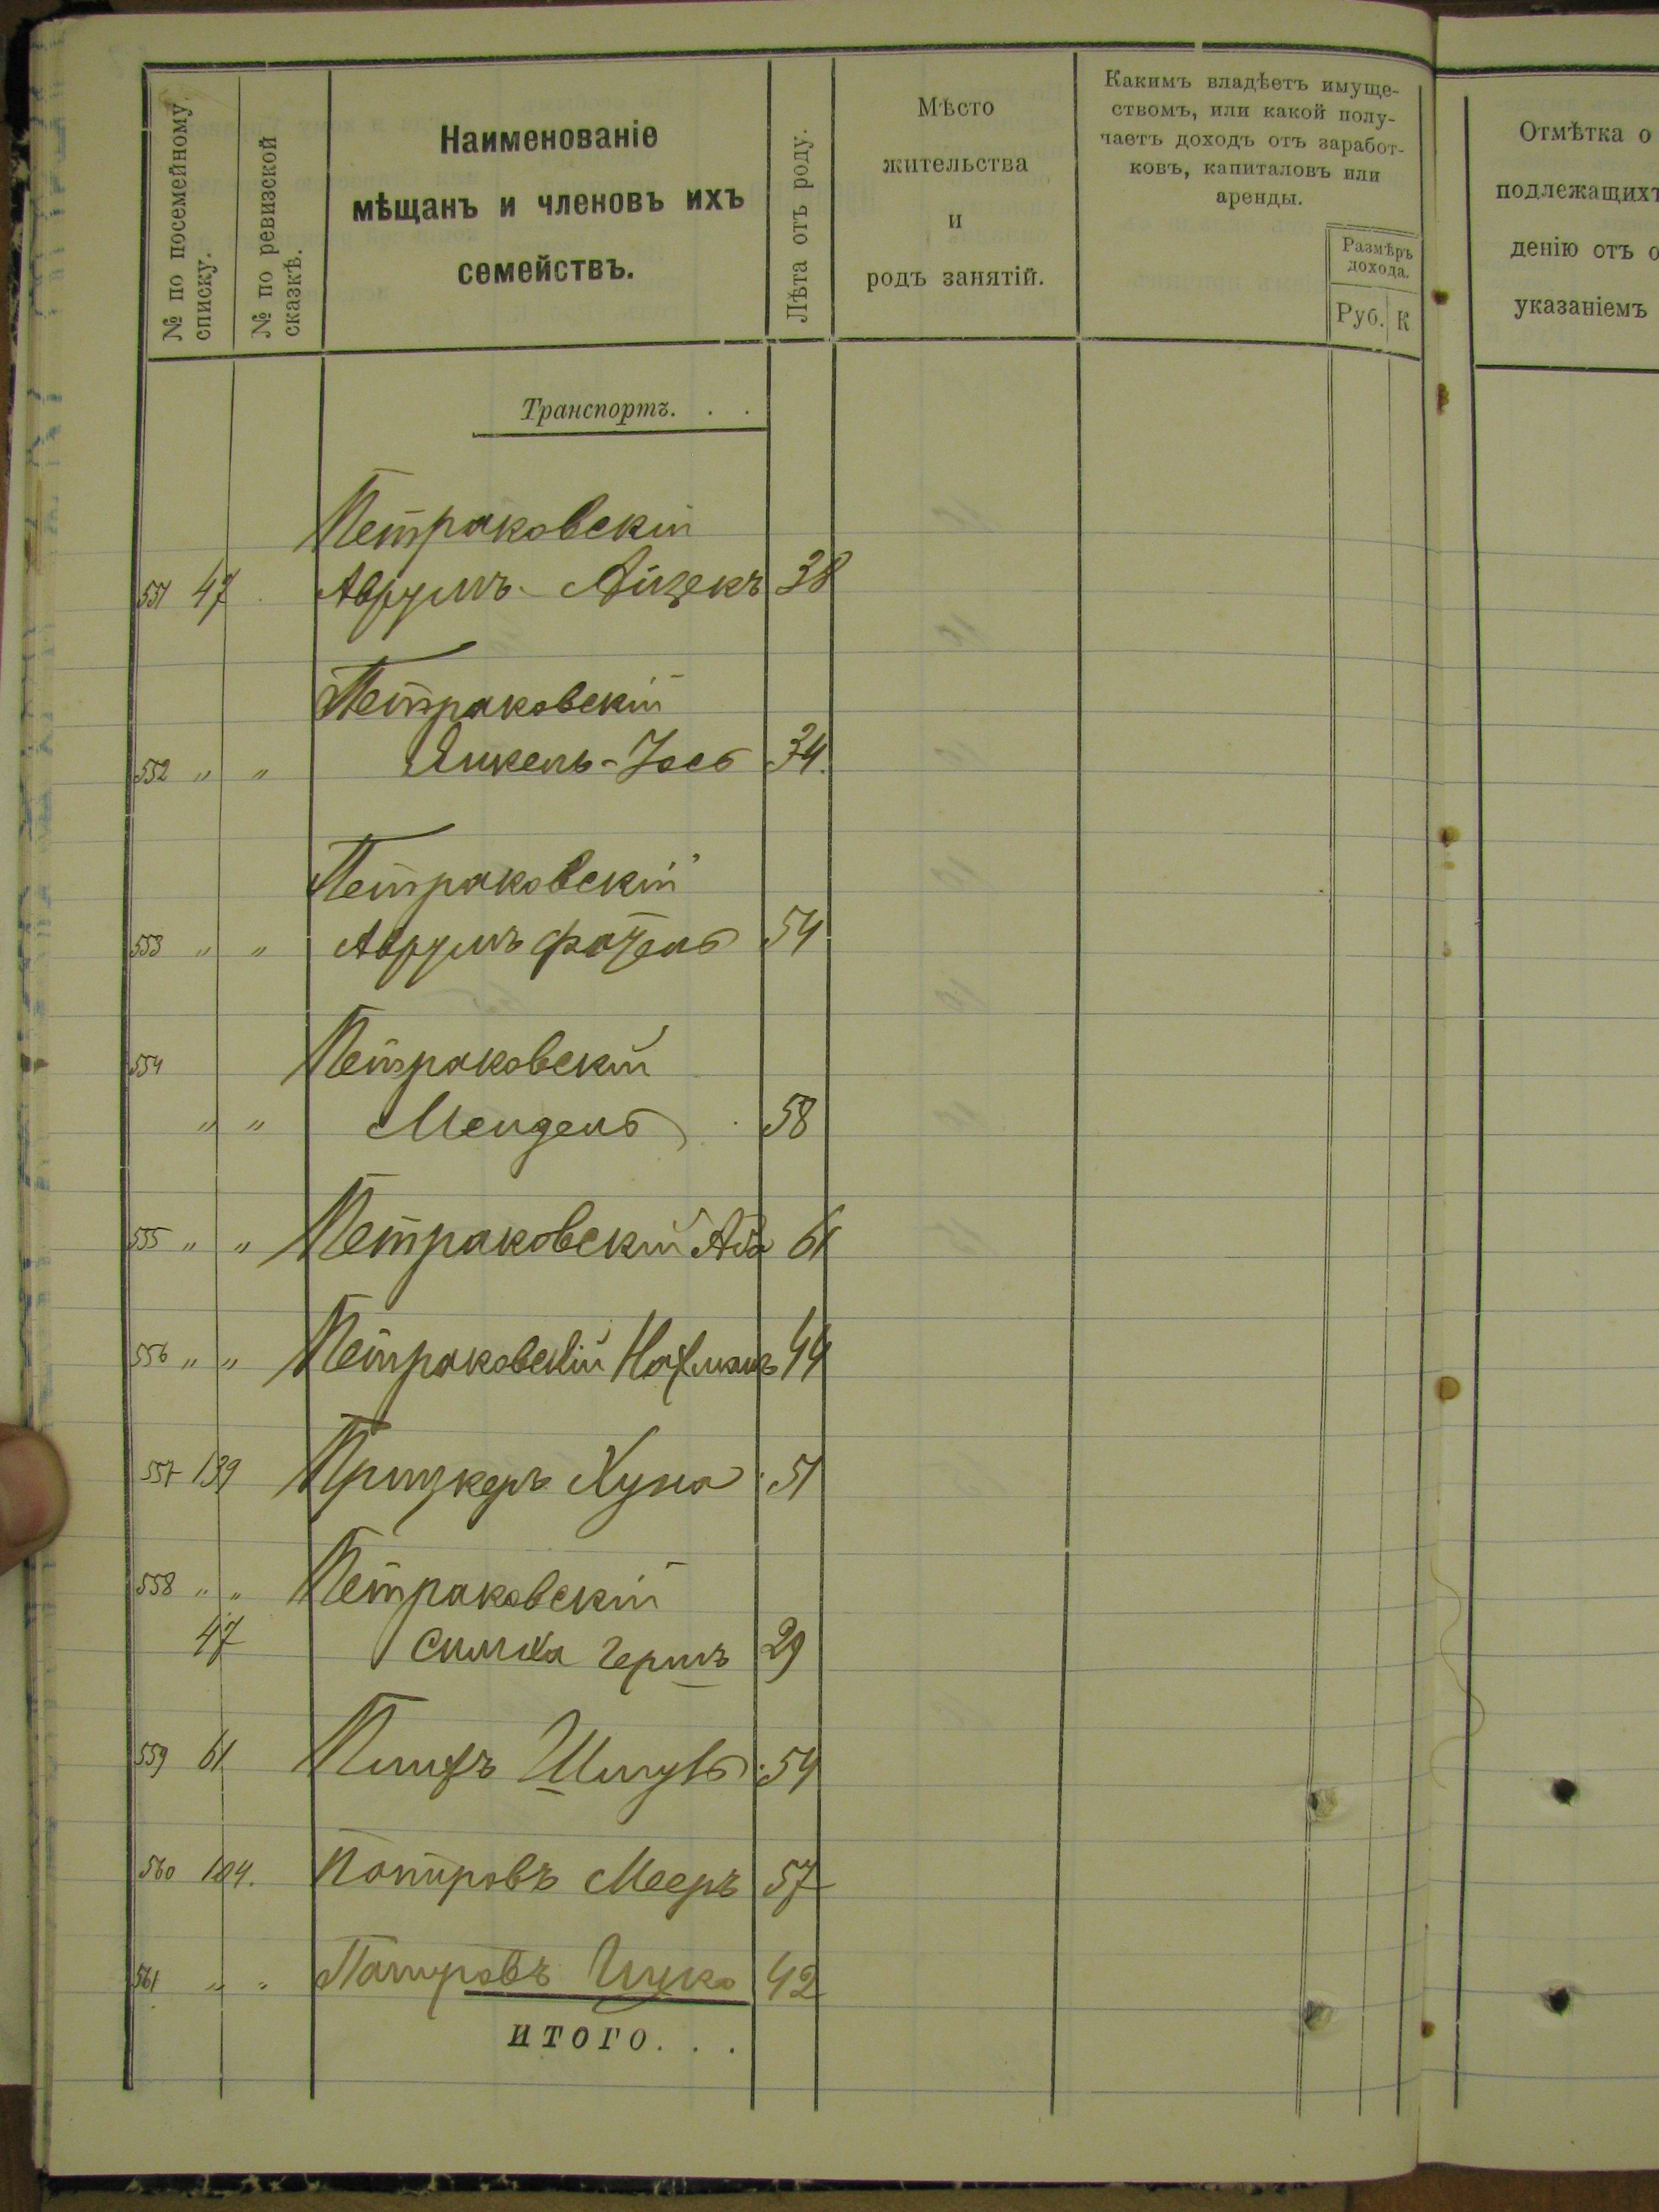 № по посемейному списку.
№ по ревизской сказкѣ.
Наименованіе
мѣщанъ и членовъ ихъ
семействъ.
Лѣта отъ роду.
Мѣсто
жительства
и
родъ занятій.
Какимъ владѣетъ имуще-
ствомъ, или какой полу-
чаетъ доходъ отъ заработ-
ковъ, капиталовъ или
аренды.
Размѣръ
дохода.
Руб. К
Отмѣтка о
подлежащихъ
денію отъ о
указаніемъ
Транспортъ. . .
Петраковскій
551 47 Аврумъ-Айзекъ 38
Петраковскій
552 " " Янкель-Іосъ 34.
Петраковскій
553 " " Аврумъ 54
554 Петраковскій
" " Мендель 58
555 " " Петраковскій Аба 61
556 " " Петраковскій Нахманъ 44
557 139 Прицкеръ Хуна 51
558 " " Петраковскій
47 Симха Гершъ 29
559 61 Шмуль 54
560 104. Патировъ Мееръ 57
561 " " Патировъ Ицко 42
итого. . .